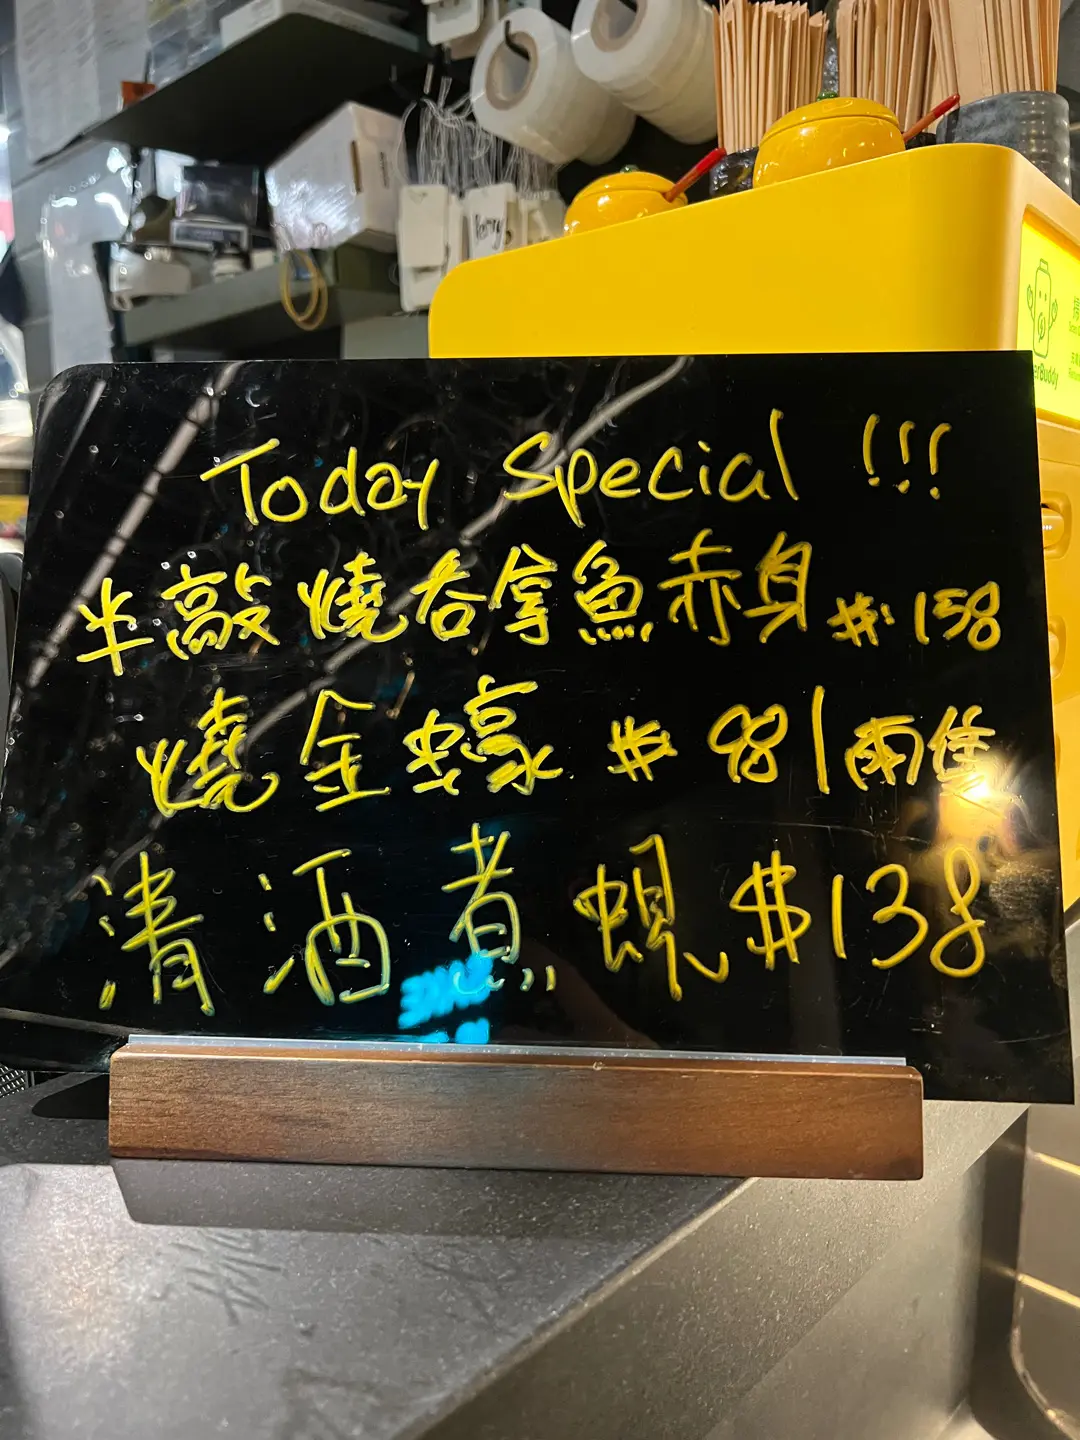 Today Special !!!
半敲燒吞拿魚赤身 $158
燒金蠔 $98/兩隻
清酒煮蜆 $138
Perry
erBuddy